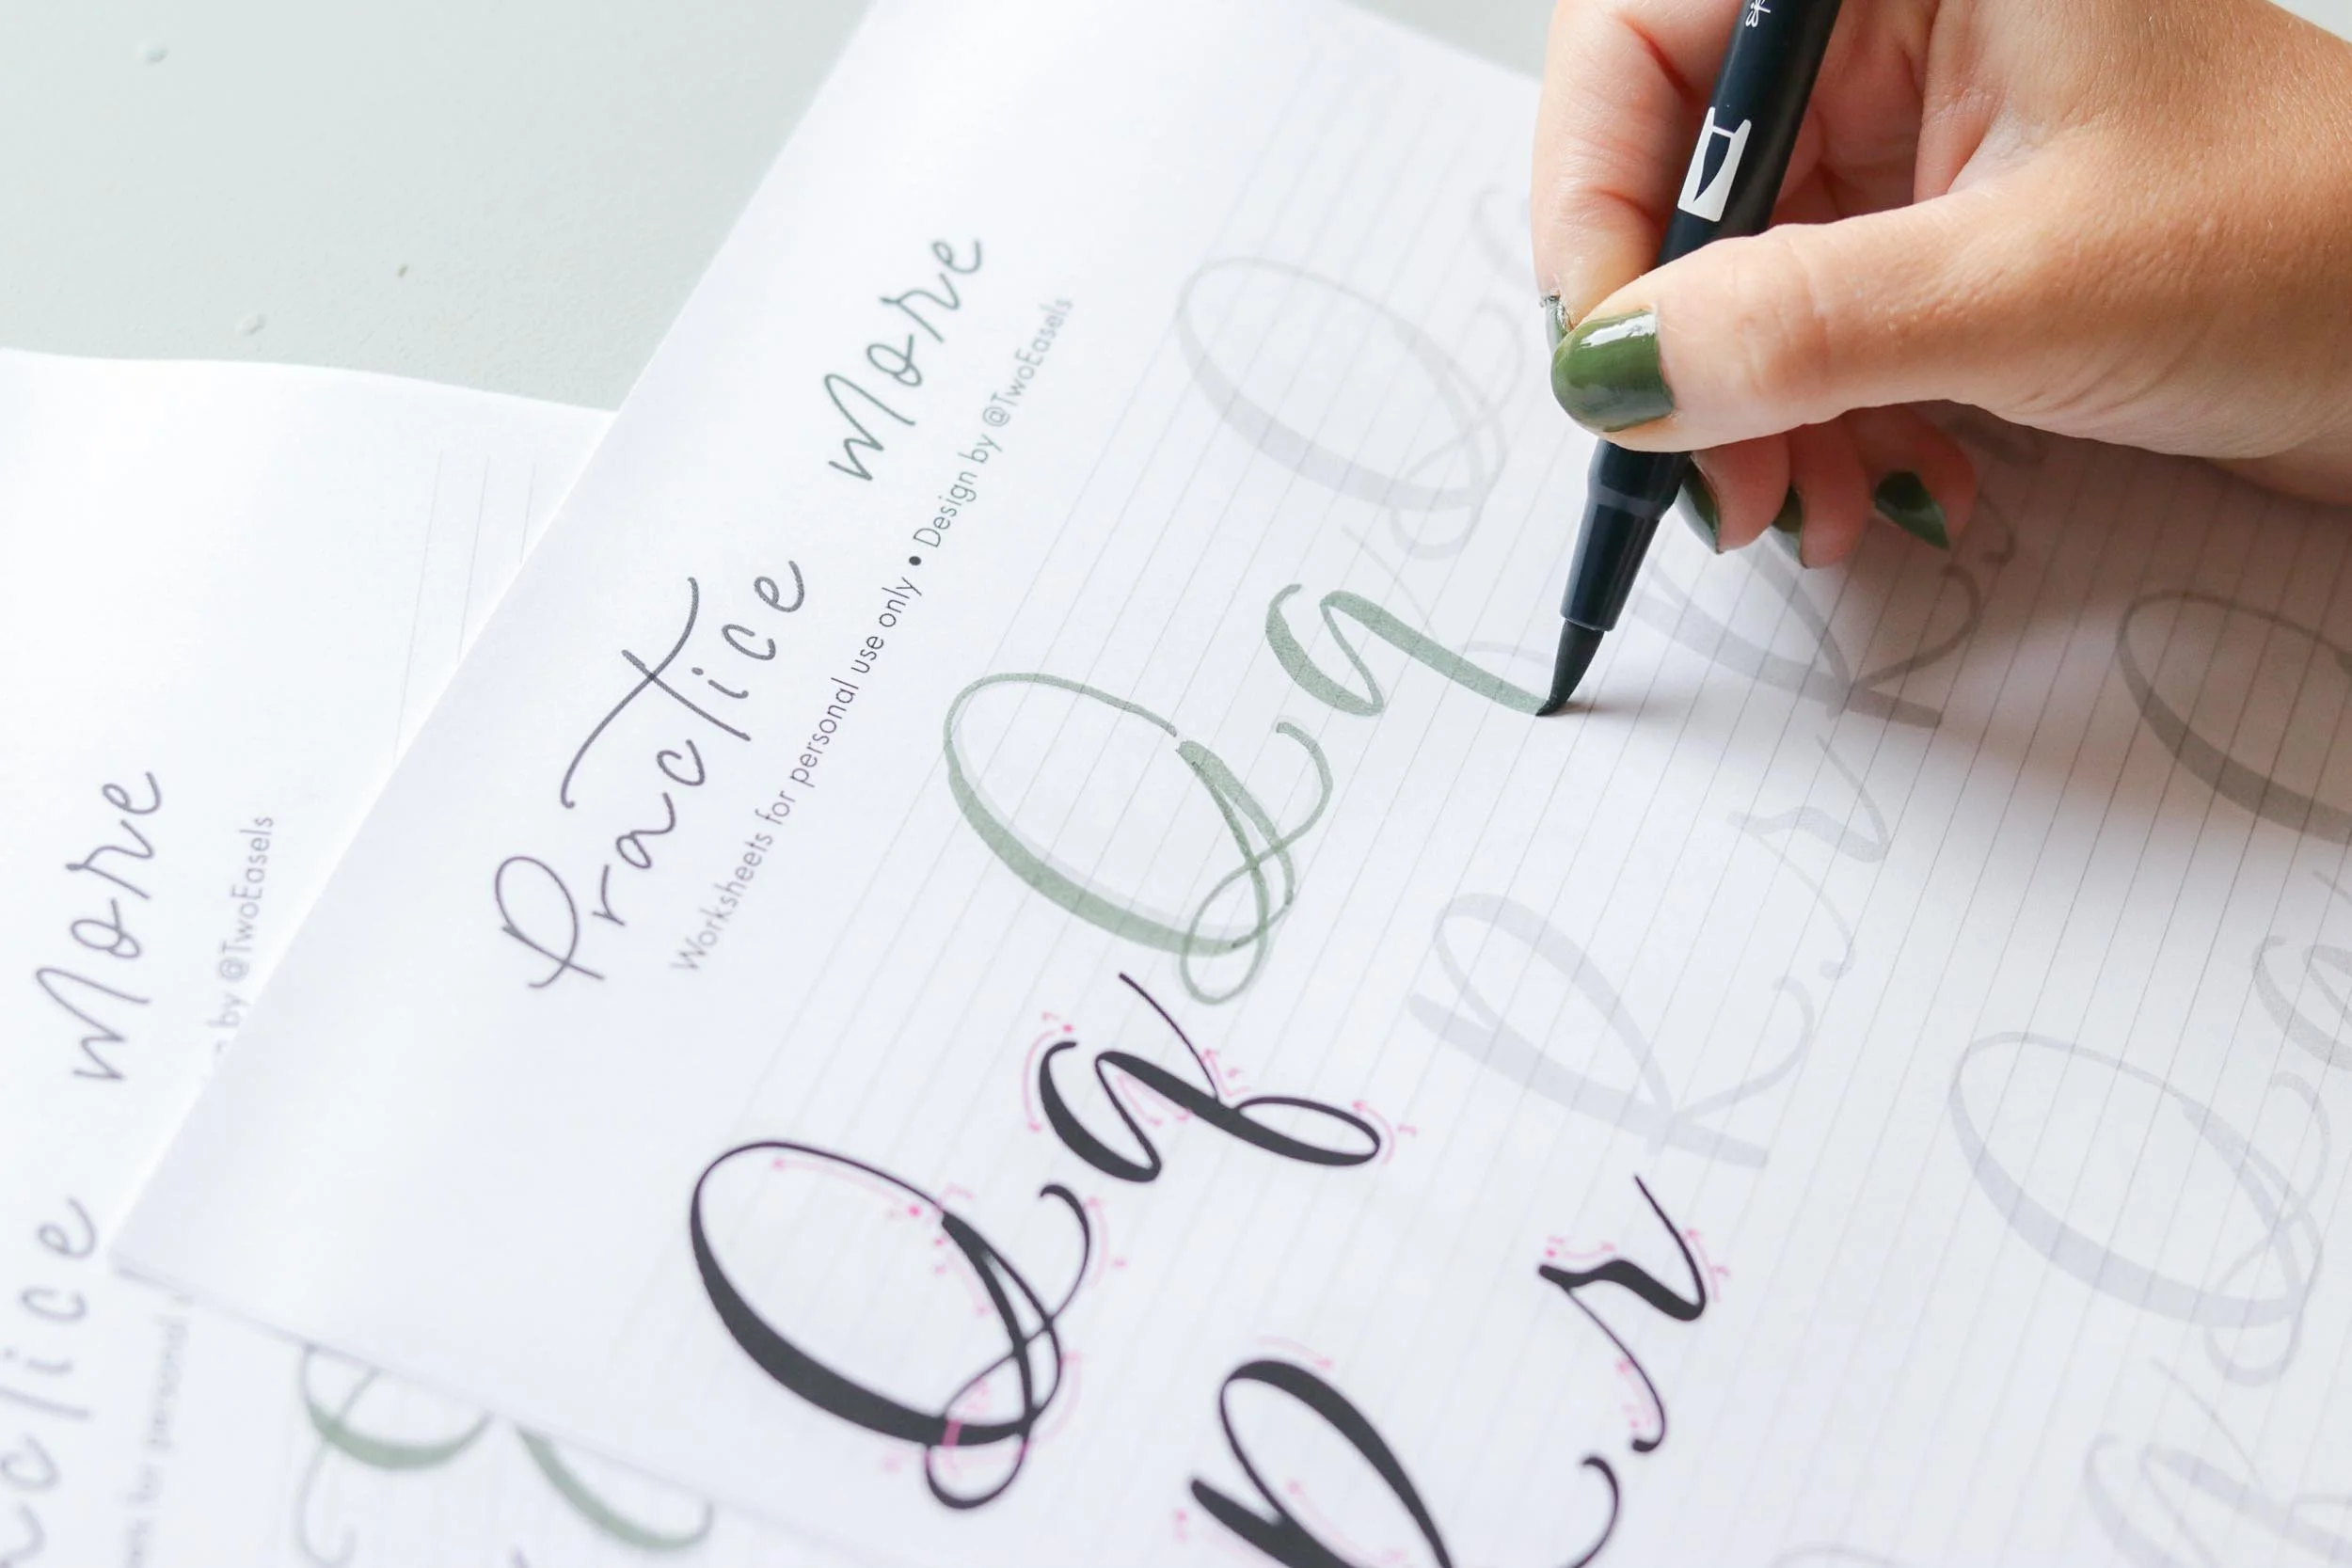 Practice More
Worksheets for personal use only • Design by @TwoEasels
Q q Q q Q q
R r R r R r
Q q Q
More
by @TwoEasels
ctice
for personal